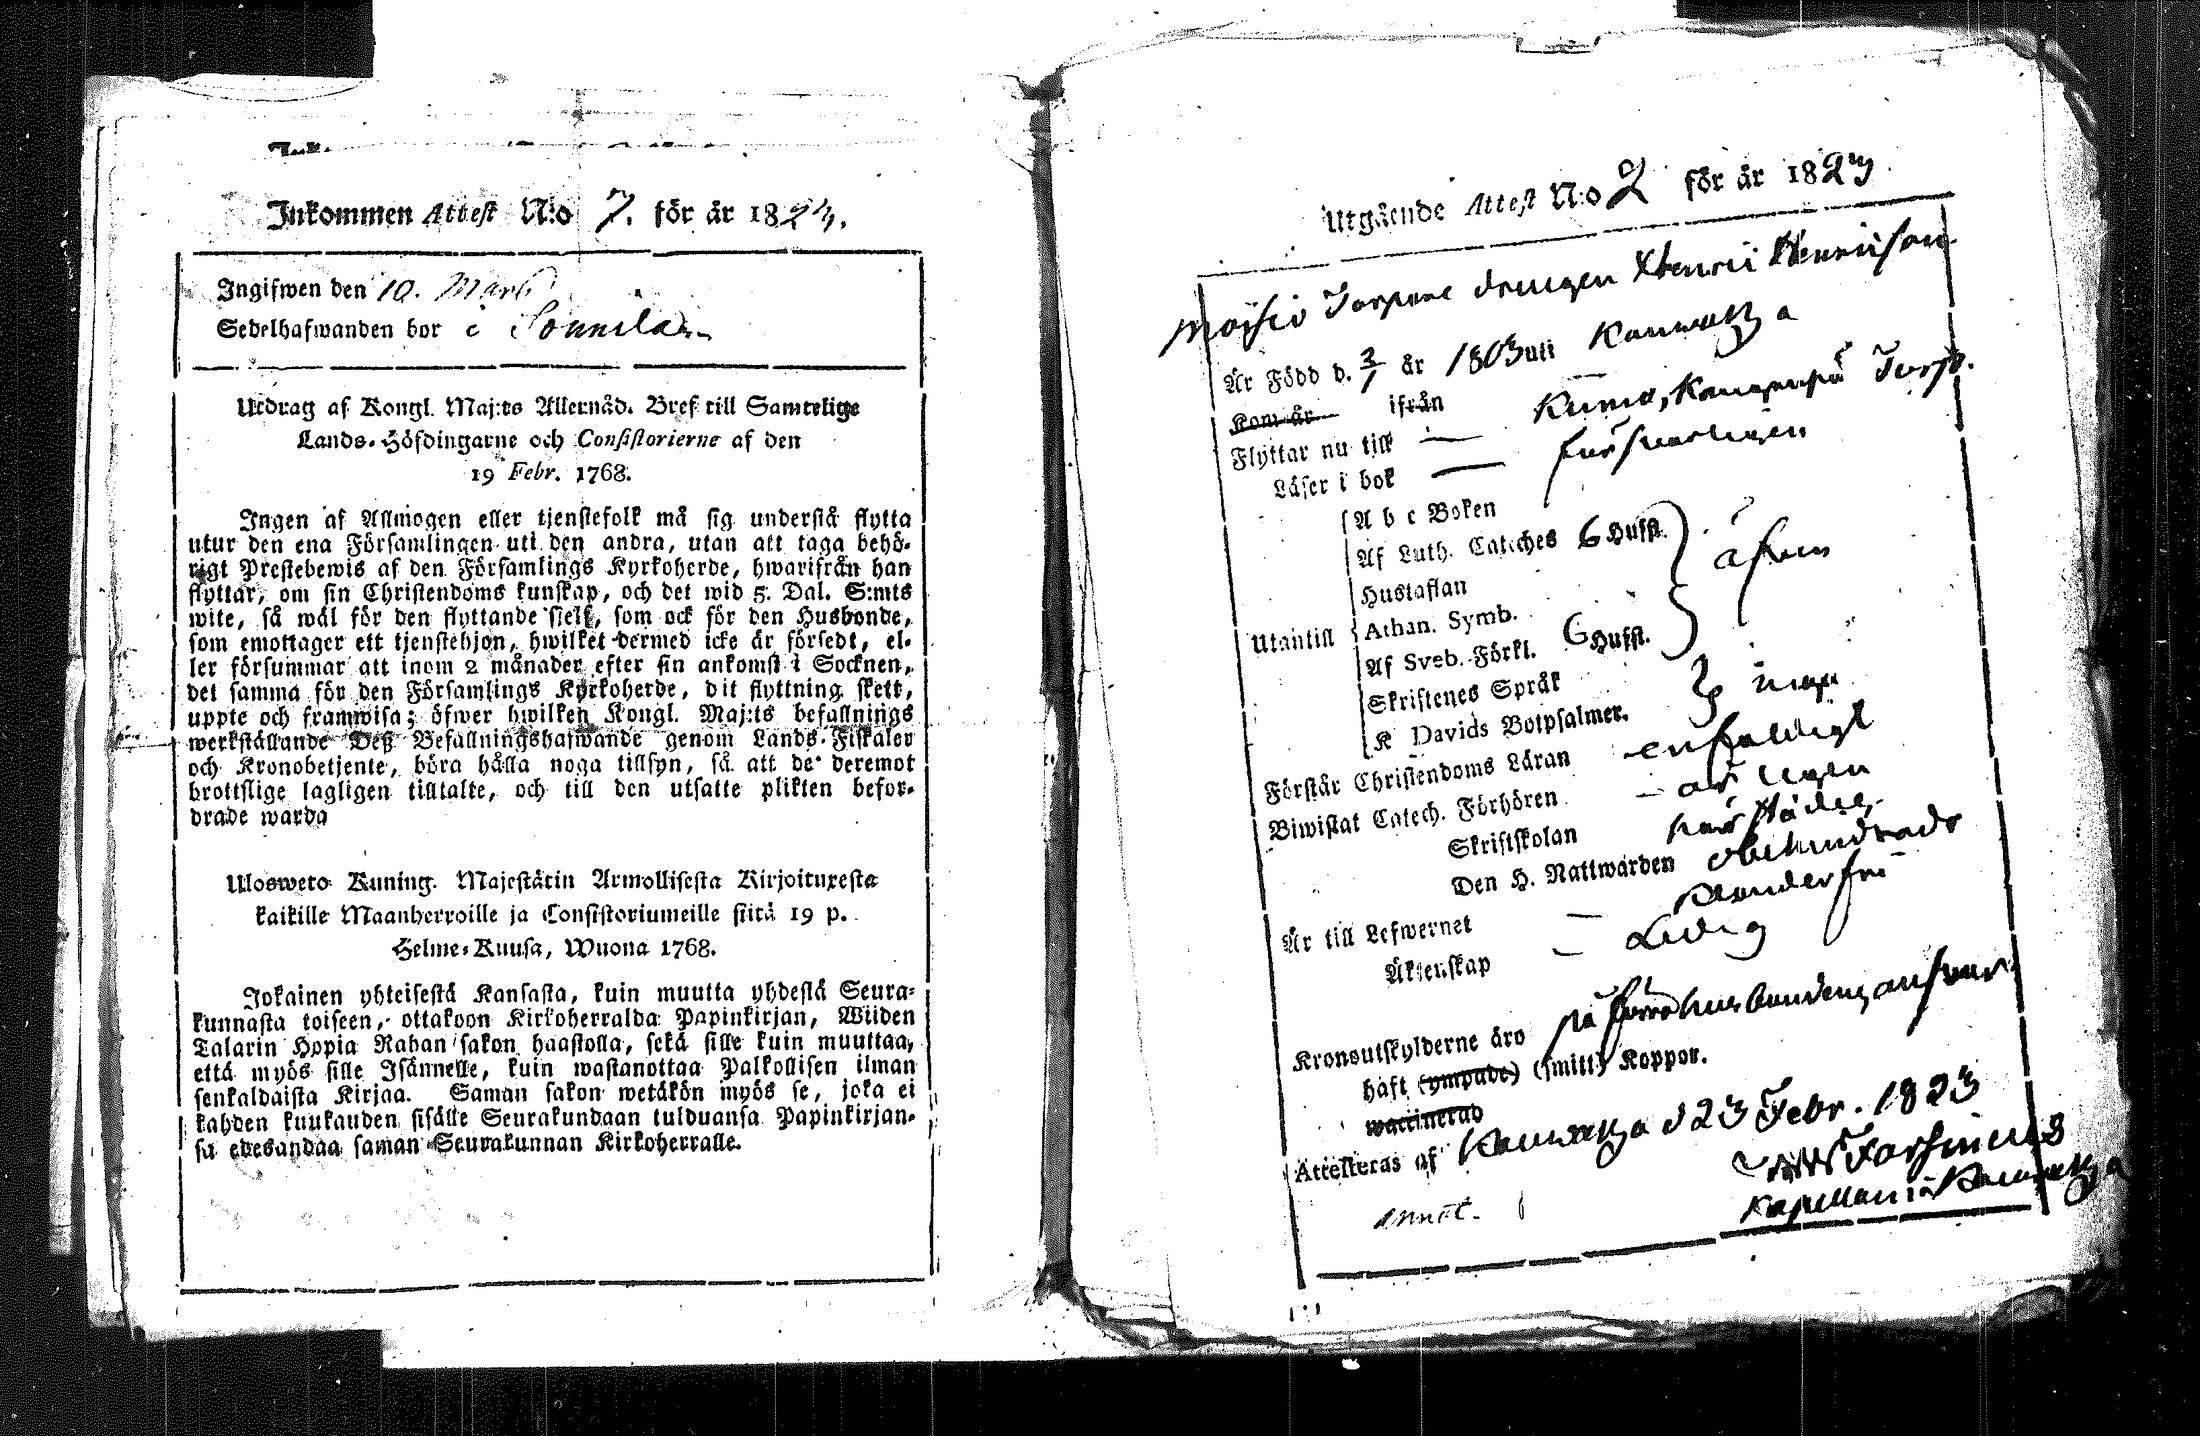 Inkommen Attest N:o 7. för år 1823.
Ingifwen den 10. Martii
Sedelhafwanden bor i Sonnila
Utdrag af Kongl. Maj:ts Allernåd. Bref till Samtelige
Lands-Höfdingarne och Consistorierne af den
19 Febr. 1768.
Ingen af Allmogen eller tjenstefolk må sig understå flytta
utur den ena Församlingen uti den andra, utan att taga behö-
rigt Prestebewis af den Församlings Kyrkoherde, hwarifrån han
flyttar, om sin Christendoms kunskap, och det wid 5. Dal. S:mts
wite, så wäl för den flyttande sielf, som ock för den Husbonde,
som emottager ett tjenstehjon, hwilket dermed icke är försedt, el-
ler försummar att inom 2 månader efter sin ankomst i Socknen,
det samma för den Församlings Kyrkoherde, dit flyttning skett,
uppte och framwisa; öfwer hwilken Kongl. Maj:ts befallnings
werkställande Deß Befallningshafwande genom Lands-Fiskaler
och Kronobetjente, böra hålla noga tillsyn, så att de deremot
brottslige lagligen tilltalte, och till den utsatte plikten befor-
drade warda
Ulosweto Kuning. Majestätin Armollisesta Kirjoituxesta
kaikille Maanherroille ja Consistoriumeille siitä 19 p.
Helme-Kuusa, Wuona 1768.
Jokainen yhteisestä Kansasta, kuin muutta yhdestä Seura-
kunnasta toiseen, ottakoon Kirkoherralda Papinkirjan, Wiiden
Talarin Hopia Rahan sakon haastolla, sekä sille kuin muuttaa,
että myös sille Isännelle, kuin wastanottaa Palkollisen ilman
senkaldaista Kirjaa. Saman sakon wetäkön myös se, joka ei
kahden kuukauden sisälle Seurakundaan tulduansa Papinkirjan-
sa edesandaa saman Seurakunnan Kirkoherralle.
Utgående Attest N:o 2 för år 1823
Moisio Torpare drengen Henric Henricsson
Är Född d. 3/1 år 1803 uti Kauwatza
Kom år ifrån
Flyttar nu till Kumo, Torp.
Läser i bok försvarligen
A b c Boken
Af Luth. Cateches 6 Hufst.
Hustaflan
Athan. Symb.
Utantill
Af Sveb. Förkl. 6 Hufst.
Skriftenes Språk
K Davids Botpsalmer.
Förstår Christendoms Läran enfaldigt
Biwistat Catech. Förhören årligen
Skriftskolan
Den H. Nattwarden
Är till Lefwernet obehindrad
Äktenskap Ledig
Kronoutskylderne äro på förra husbondens answar
haft (ympade) (smitt) Koppor.
waccinerad
Attesteras af Kauwatza d 23 Febr. 1823
Kapellan i Kauwatza